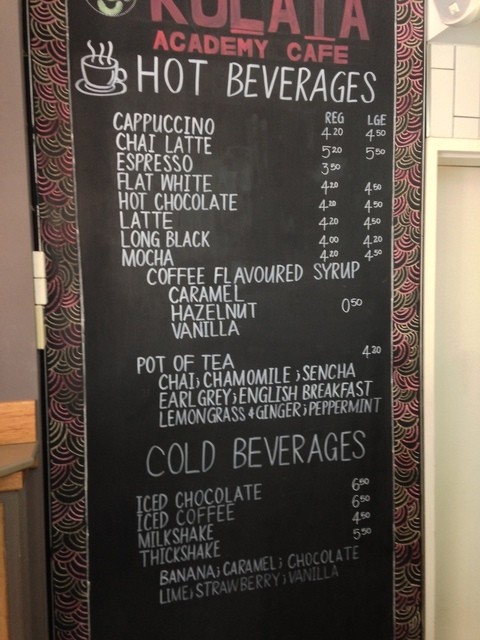 KOLATA
ACADEMY CAFE
HOT BEVERAGES
REG LGE
CAPPUCCINO 4.20 4.50
CHAI LATTE 5.20 5.50
ESPRESSO 3.50
FLAT WHITE 4.20 4.50
HOT CHOCOLATE 4.20 4.50
LATTE 4.20 4.50
LONG BLACK 4.00 4.20
MOCHA 4.20 4.50
COFFEE FLAVOURED SYRUP
CARAMEL
HAZELNUT 0.50
VANILLA
POT OF TEA 4.20
CHAI; CHAMOMILE; SENCHA
EARL GREY; ENGLISH BREAKFAST
LEMONGRASS & GINGER; PEPPERMINT
COLD BEVERAGES
ICED CHOCOLATE 6.50
ICED COFFEE 6.50
MILKSHAKE 4.50
THICKSHAKE 5.50
BANANA; CARAMEL; CHOCOLATE
LIME; STRAWBERRY; VANILLA